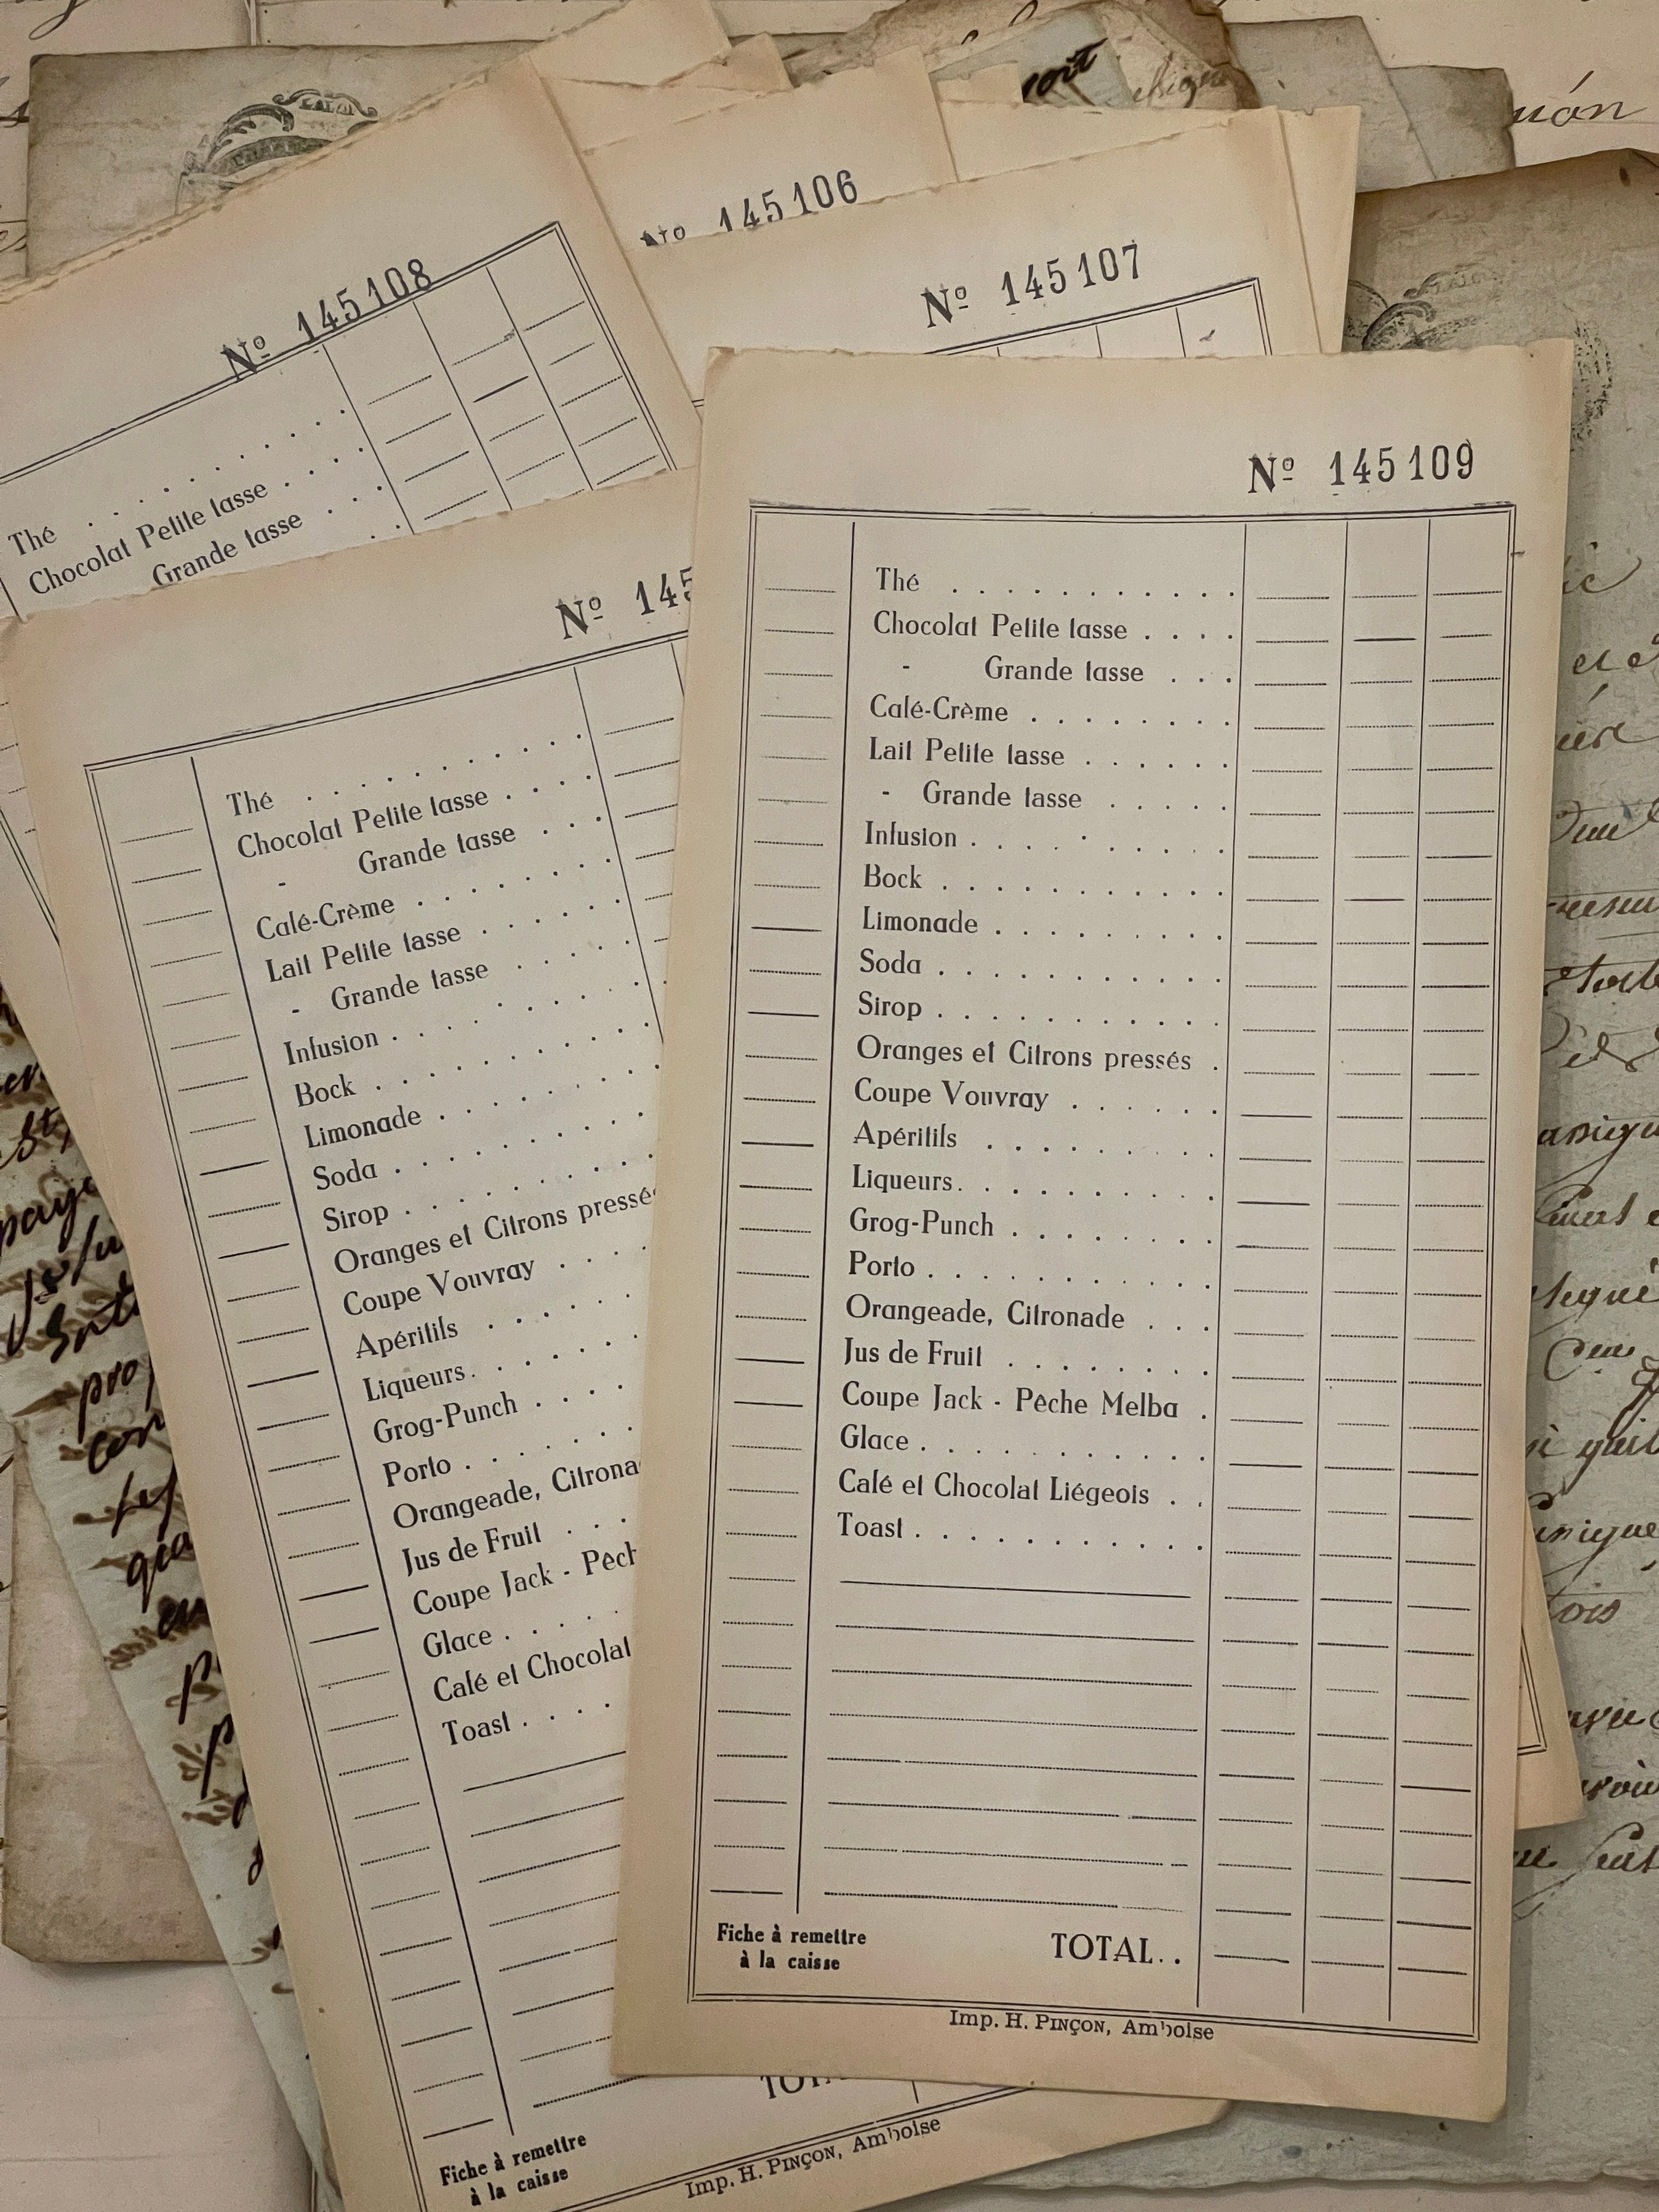 soit
Nº 145106
Nº 145107
Nº 145108
Thé
Chocolat Petite tasse
Grande tasse
Nº 145
Thé
Chocolat Petite tasse
- Grande tasse
Café-Crème
Lait Petite tasse
- Grande tasse
Infusion
Bock
Limonade
Soda
Sirop
Oranges et Citrons pressés
Coupe Vouvray
Apéritifs
Liqueurs
Grog-Punch
Porto
Orangeade, Citrona
Jus de Fruit
Coupe Jack - Pêch
Glace
Café et Chocolat
Toast
Fiche à remettre
à la caisse
Imp. H. PINÇON, Amboise
Nº 145109
Thé
Chocolat Petite tasse
- Grande tasse
Café-Crème
Lait Petite tasse
- Grande tasse
Infusion
Bock
Limonade
Soda
Sirop
Oranges et Citrons pressés
Coupe Vouvray
Apéritifs
Liqueurs
Grog-Punch
Porto
Orangeade, Citronade
Jus de Fruit
Coupe Jack - Pêche Melba
Glace
Café et Chocolat Liégeois
Toast
Fiche à remettre
à la caisse
TOTAL
Imp. H. PINÇON, Amboise